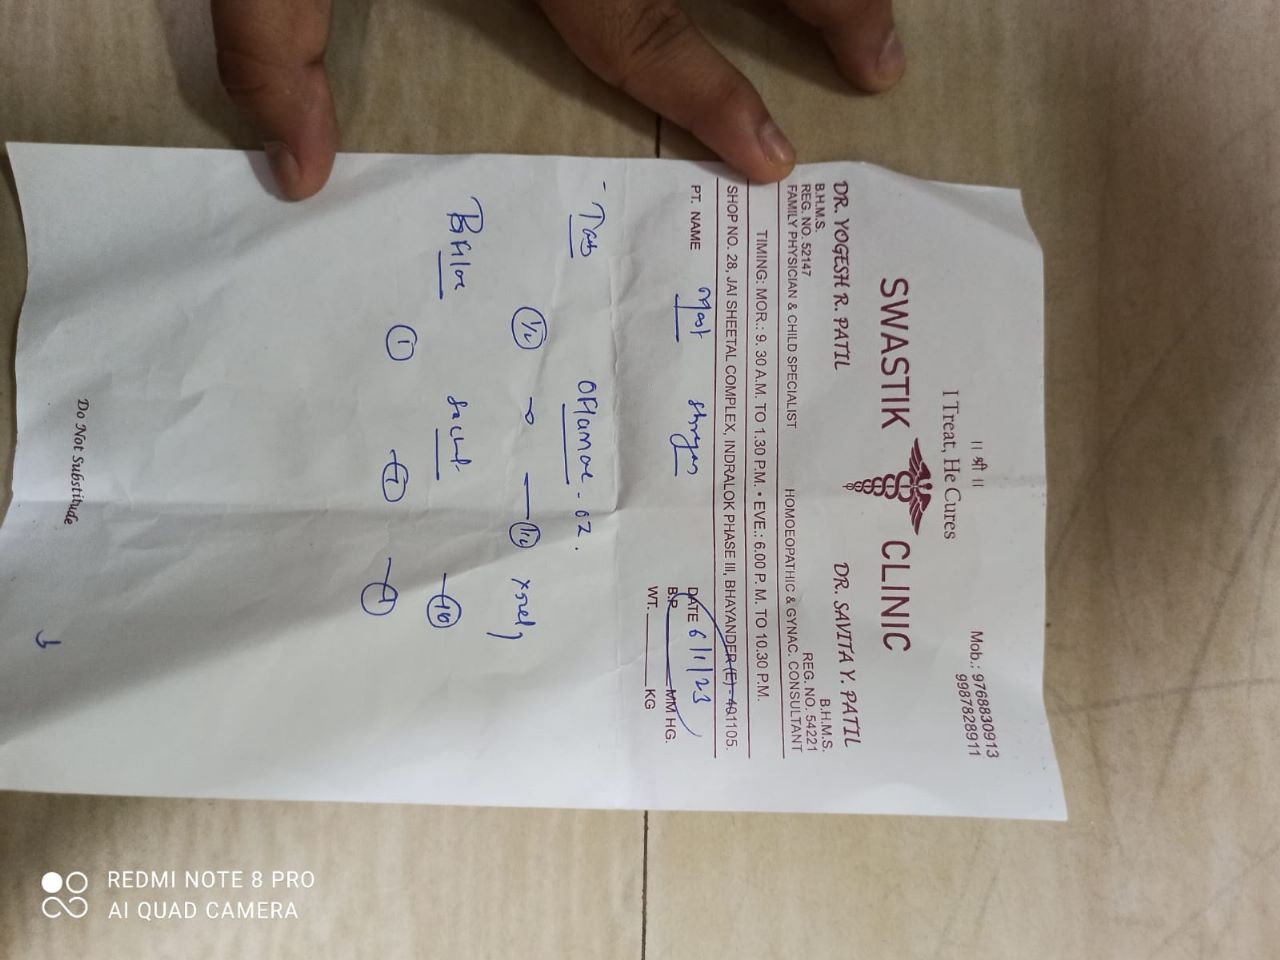 || श्री ||
I Treat, He Cures
Mob.: 9768830913
9987828911
SWASTIK CLINIC
DR. YOGESH R. PATIL
B.H.M.S.
REG. NO. 52147
FAMILY PHYSICIAN & CHILD SPECIALIST
DR. SAVITA Y. PATIL
B.H.M.S.
REG. NO. 54221
HOMOEOPATHIC & GYNAC. CONSULTANT
TIMING: MOR.: 9. 30 A.M. TO 1.30 P.M. • EVE.: 6.00 P. M. TO 10.30 P.M.
SHOP NO. 28, JAI SHEETAL COMPLEX, INDRALOK PHASE III, BHAYANDER (E) - 401105.
PT. NAME Mast
DATE 6/1/23
B.P. MM HG.
WT. KG
- Tab
1/2 1/2
10
1 1 1
Do Not Substitute
REDMI NOTE 8 PRO
AI QUAD CAMERA